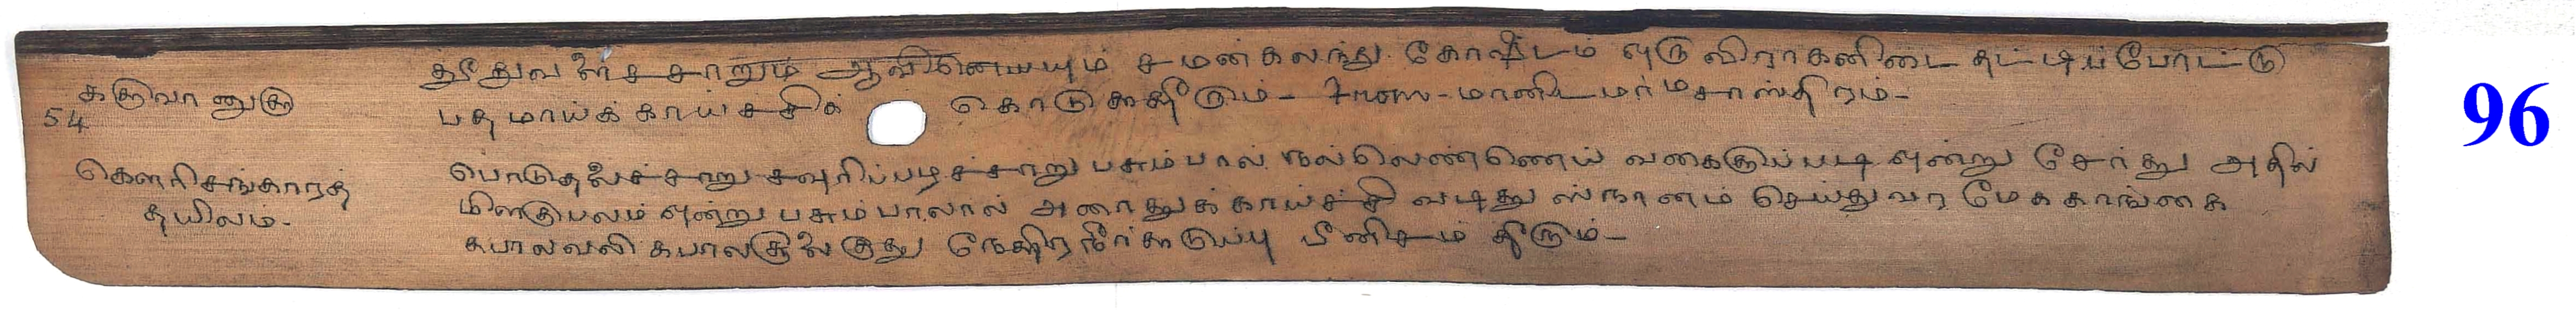 தூதுவளைச்சாறும் ஆவினெயயும் சமன்கலந்து கோஷ்டம் எரு விராகனிடை தட்டிப்போட்டு
பதமாய்க் காய்ச்சிக் கொடுக்கத்தீரும் - மானிடமர்மசாஸ்திரம் -
54
கௌரிசிங்காரத்
தயிலம் -
பொடுதலைச்சாறு சவுரிப்பழச்சாறு பசும்பால் நல்லெண்ணெய் வகைக்குப்படி ஒன்று சேர்த்து அதில்
மிளகுபலம் ஒன்று பசும்பாலால் அரைத்துக் காய்ச்சி வடித்து ஸ்நானம் செய்துவர மேககாங்கை
கபாலவலி கபாலசூலை குத்து நேத்திரநீர்கடுப்பு பீனிசம் தீரும் -
96